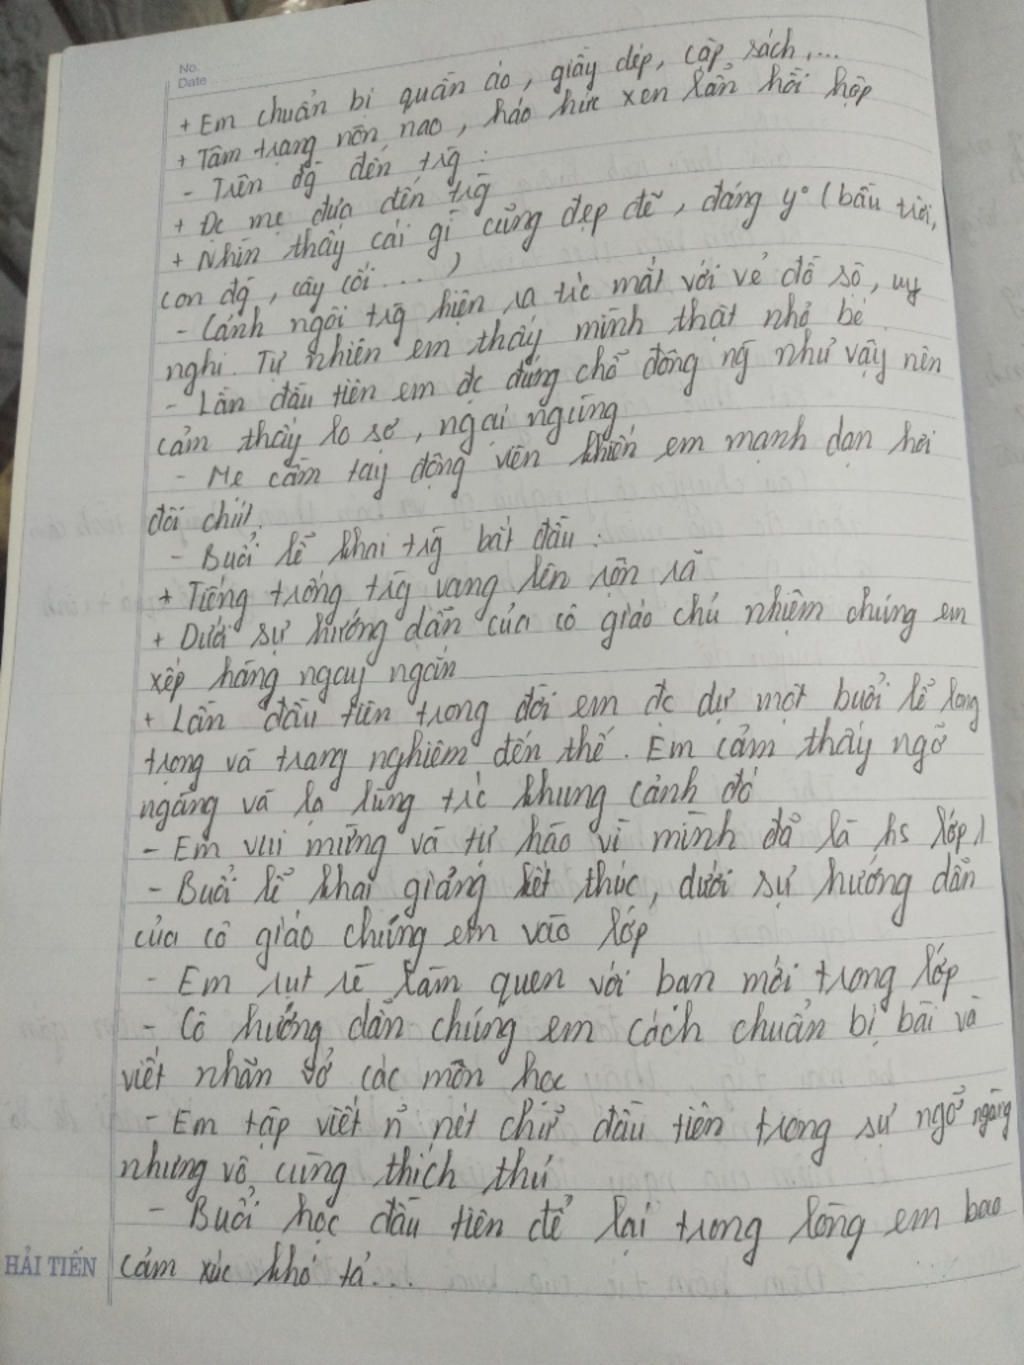 No.
Date
+ Em chuẩn bị quần áo, giầy dép, cặp sách,...
+ Tâm trạng nôn nao, háo hức xen lẫn hồi hộp
- Trên đg đến trg :
+ Đc mẹ đưa đến trg
+ Nhìn thấy cái gì cũng đẹp đẽ, đáng y° (bầu trời,
con đg, cây cối ....)
- Cảnh ngôi trg hiện ra trc mắt với vẻ đồ sộ, uy
nghi. Tự nhiên em thấy mình thật nhỏ bé
- Lần đầu tiên em đc đứng chỗ đông ng̀ như vậy nên
cảm thấy lo sợ, ngại ngùng
- Mẹ cầm tay động viên khiến em mạnh dạn hơi
đôi chút.
- Buổi lễ khai trg bắt đầu :
+ Tiếng trống trg vang lên rộn rã
+ Dưới sự hướng dẫn của cô giáo chủ nhiệm chúng em
xếp hàng ngay ngắn
+ Lần đầu tiên trong đời em đc dự một buổi lễ long
trọng và trang nghiêm đến thế. Em cảm thấy ngỡ
ngàng và lạ lùng trc khung cảnh đó
- Em vui mừng và tự hào vì mình đã là hs lớp 1
- Buổi lễ khai giảng kết thúc, dưới sự hướng dẫn
của cô giáo chúng em vào lớp
- Em rụt rè làm quen với bạn mới trong lớp
- Cô hướng dẫn chúng em cách chuẩn bị bài và
viết nhãn vở các môn học
- Em tập viết n~ nét chữ đầu tiên trong sự ngỡ ngàng
nhưng vô cùng thích thú
- Buổi học đầu tiên để lại trong lòng em bao
cảm xúc khó tả...
HẢI TIẾN